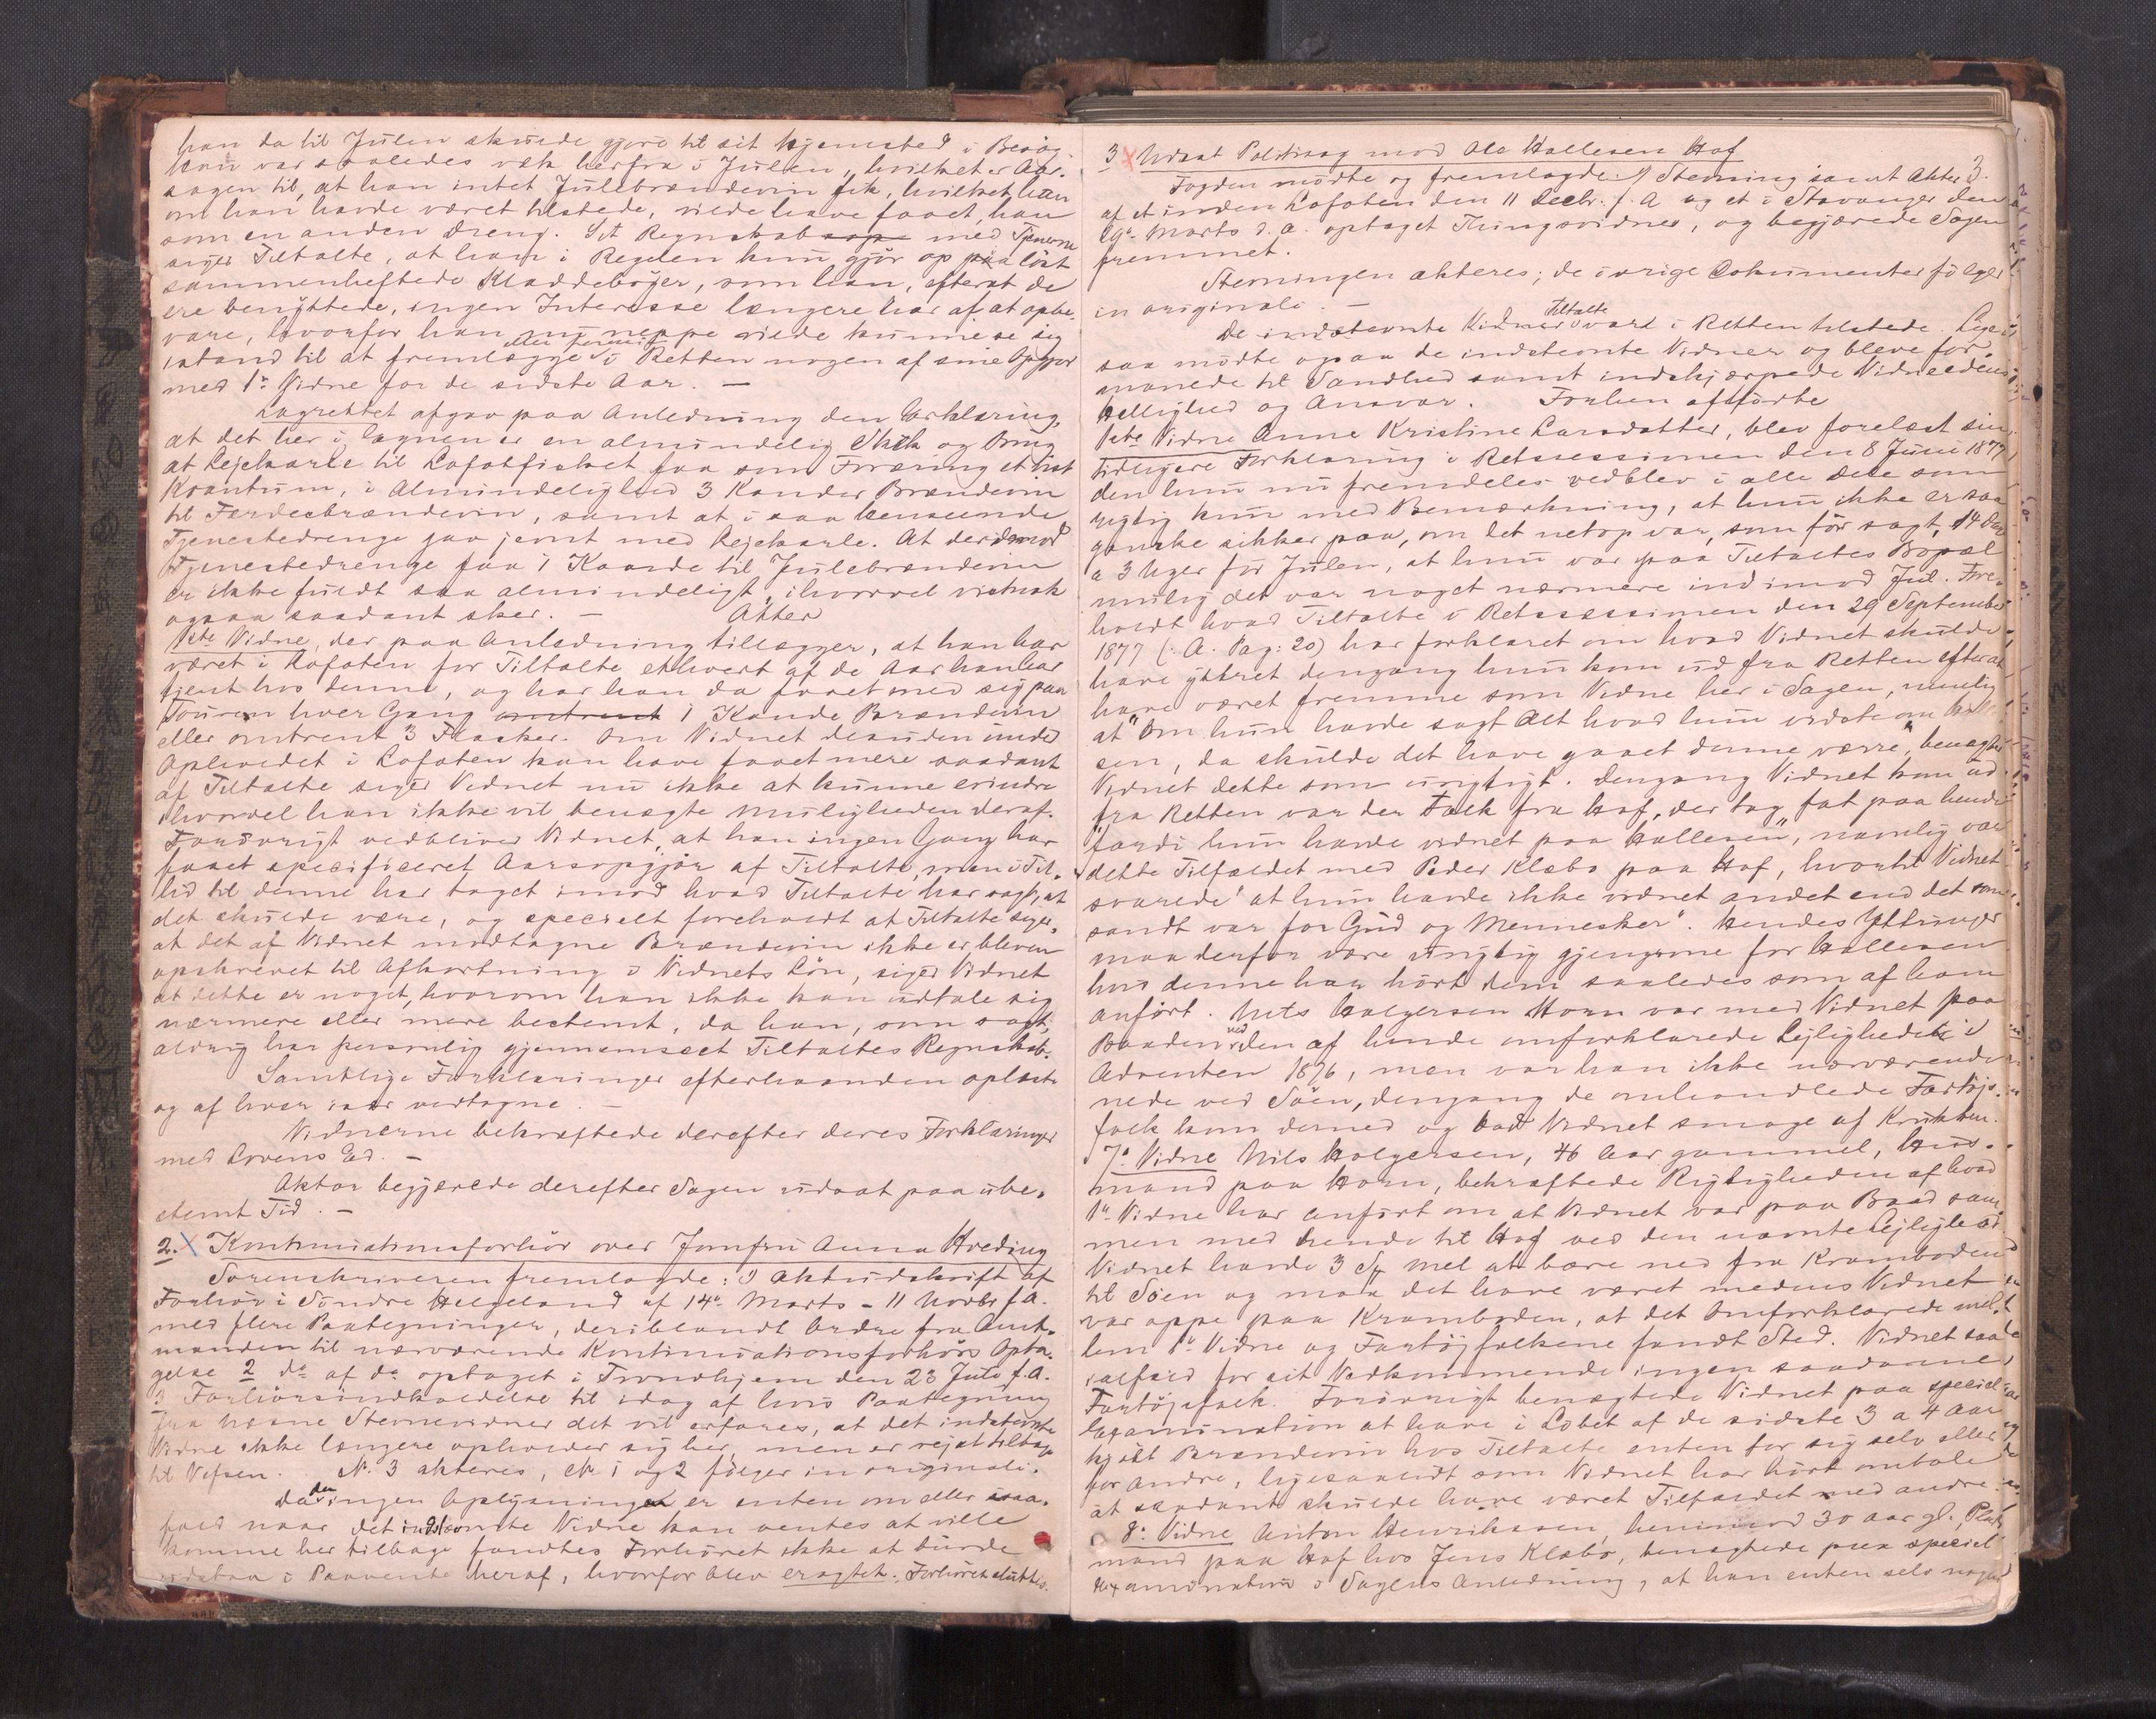 han da til Julen skulde gjøre til sit hjemsted i Besøg
han var saaledes væk herfra i Julen, hvilket er Aar-
sagen til, at han intet Julebrændevin fik, hvilket han
om han havde været tilstede, vilde have faaet, han
som en anden Dreng. Sit Regnskab med Tjenerne
siger Tiltalte, at han i Regelen kun gjør op paa løst
sammenheftede Kladdebøger, som han, efterat de
ere benyttede, ingen Interesse længere har af at opbe-
vare, hvorfor han nu neppe vilde kunne se sig
istand til at fremlægge i Retten nogen af sine Opgjør
med 1ste Vidne for de sidste Aar. —
Lagrettet afgav paa Anledning den Erklæring,
at det her i Egnen er en almindelig Skik og Brug
at Lejekarle til Lofotfisket faa som Foræring et vist
Kvantum, i Almindelighed 3 Kander Brændevin
til Færdesbrændevin, samt at i saa Henseende
Tjenestedrenge gaa jevnt med Lejekarle. At derimod
Tjenestedrenge faa 1 Kande til Julebrændevin
er ikke fuldt saa almindeligt, ihvorvel vistnok
ogsaa saadant sker. — Atter
1ste Vidne, der paa Anledning tillægger, at han har
været i Lofoten for Tiltalte ethvert af de Aar han har
tjent hos denne, og har han da faaet med sig paa
Touren hver Gang omtrent 1 Kande Brændevin
eller omtrent 3 Flasker. Om Vidnet desuden under
Opholdet i Lofoten kan have faaet mere saadant
af Tiltalte siger Vidnet nu ikke at kunne erindre
ihvorvel han ikke vil benægte Muligheden deraf.
Forøvrigt vedbliver Vidnet, at han ingen Gang har
faaet specificeret Aarsopgjør af Tiltalte, men i Til-
lid til denne har taget imod hvad Tiltalte har sagt, at
det skulde være, og specielt foreholdt at Tiltalte siger,
at det af Vidnet modtagne Brændevin ikke er bleven
opskrevet til Afkortning i Vidnets Løn, siger Vidnet
at dette er noget, hvorom han ikke kan udtale sig
nærmere eller mere bestemt, da han, som sagt,
aldrig har personlig gjennemseet Tiltaltes Regnskab.
Samtlige Forklaringer efterhaanden oplæste
og af hver især vedtagne. —
Vidnerne bekræftede derefter deres Forklaringer
med Lovens Ed. —
Aktor begjærede derefter Sagen udsat paa ube-
stemt Tid. —
2. X Kontinuationsforhør over Jomfru Anna Hveding
Sorenskriveren fremlagde: 1) Aktudskrift af
Forhør i Søndre Helgeland af 14de Marts - 11 Novbr f. A.
med flere Paategninger, deriblandt Ordre fra Amt-
manden til nærværende Kontinuationsforhørs Opta-
gelse 2 do af do optaget i Trondhjem den 23 Juli f. A.
3 Forhørsindkaldelse til idag af hvis Paategning
fra Stevnevidner det vil erfares, at det indstevnte
Vidne ikke længere opholder sig her, men er rejst tilbage
til Vefsen. No. 3 akteres, No 1 og 2 følger in originali.
Da der ingen Oplysninger er enten om eller isaa-
fald naar det indstævnte Vidne kan ventes at ville
komme her tilbage fandtes Forhøret ikke at burde
udsættes i Paavente heraf, hvorfor blev eragtet: Forhøret sluttes.
3 X Udsat Politisag mod Ole Hallesen Hof
3.
Fogden mødte og fremlagde: 1) Stevning samt Akter
af et inden Lofoten den 11 Decbr. f. A og et i Stavanger den
29de Marts d. A. optaget Thingsvidner, og begjærede Sagen
fremmet.
Stevningen akteres; de øvrige Dokumenter følger
in originali. —
Tiltalte
De indstevnte Vidner vare i Retten tilstede. Lige-
saa mødte ogsaa de indstevnte Vidner og bleve for-
manede til Sandhed samt indskjærpede Vidneedens
Hellighed og Ansvar. Forhen afhørte
1ste Vidne Anne Kristine Larsdatter, blev forelæst sin
tidligere Forklaring i Retssessionen den 8 Juni 1877
den hun nu fremdeles vedblev i alle Dele som
rigtig kun med Bemærkning, at hun ikke er saa
ganske sikker paa, om det netop var, som før sagt, 14 Dage
a 3 Uger før Julen, at hun var paa Tiltaltes Bopæl
mulig det var noget nærmere ind imod Jul. Fore-
holdt hvad Tiltalte i Retssessionen den 29 September
1877 (: A. Pag: 20) har forklaret om hvad Vidnet skulde
have yttret dengang hun kom ud fra Retten efterat
have været fremme som Vidne her i Sagen, nemlig
at "Om hun havde sagt Alt hvad hun vidste om Halle-
sen, da skulde det have gaaet denne værre", benægter
Vidnet dette som urigtigt. Dengang Vidnet kom ud
fra Retten var der Folk fra Hof, der tog fat paa hende
"fordi hun havde vidnet paa Hallesen", navnlig var
dette Tilfældet med Peder Klæbo paa Hof, hvortil Vidnet
svarede "at hun havde ikke vidnet andet end det som
sandt var for Gud og Mennesker". Hendes Yttringer
maa derfor være urigtig gjengivne for Hallesen
hvis denne har hørt dem saaledes som af ham
anført. Nils Holgersen Horn var med Vidnet paa
Baaden ved den af hende omforklarede Lejlighed i
Adventen 1876, men var han ikke nærværende
nede ved Søen, dengang de omhandlede Fartøjs-
folk kom derned og bad Vidnet smage af Krukken.
7de Vidne Nils Holgersen, 46 Aar gammel, Hus-
mand paa Horn, bekræftede Rigtigheden af hvad
1ste Vidne har anført om at Vidnet var paa Baad sam-
men med hende til Hof ved den nævnte Lejlighed
Vidnet havde 3 Mel at bære ned fra Kramboden
til Søen og maa det have været medens Vidnet
var oppe paa Kramboden, at det Omforklarede mel-
lem 1ste Vidne og Fartøjfolkene fandt Sted. Vidnet saa
ialfald for sit Vedkommende ingen saadanne
Fartøjsfolk. Forøvrigt benægtede Vidnet paa speciel
Examination at have i Løbet af de sidste 3 a 4 Aar
kjøbt Brændevin hos Tiltalte enten for sig selv eller
for Andre, ligesaalidt som Vidnet har hørt omtale
at saadant skulde have været Tilfældet med andre.
8de Vidne Anton Henriksen, henimod 30 Aar gl., Plads-
mand paa Hof hos Jens Klæbo, benægtede paa speciel
Examination i Sagens Anledning, at han enten selv nogen